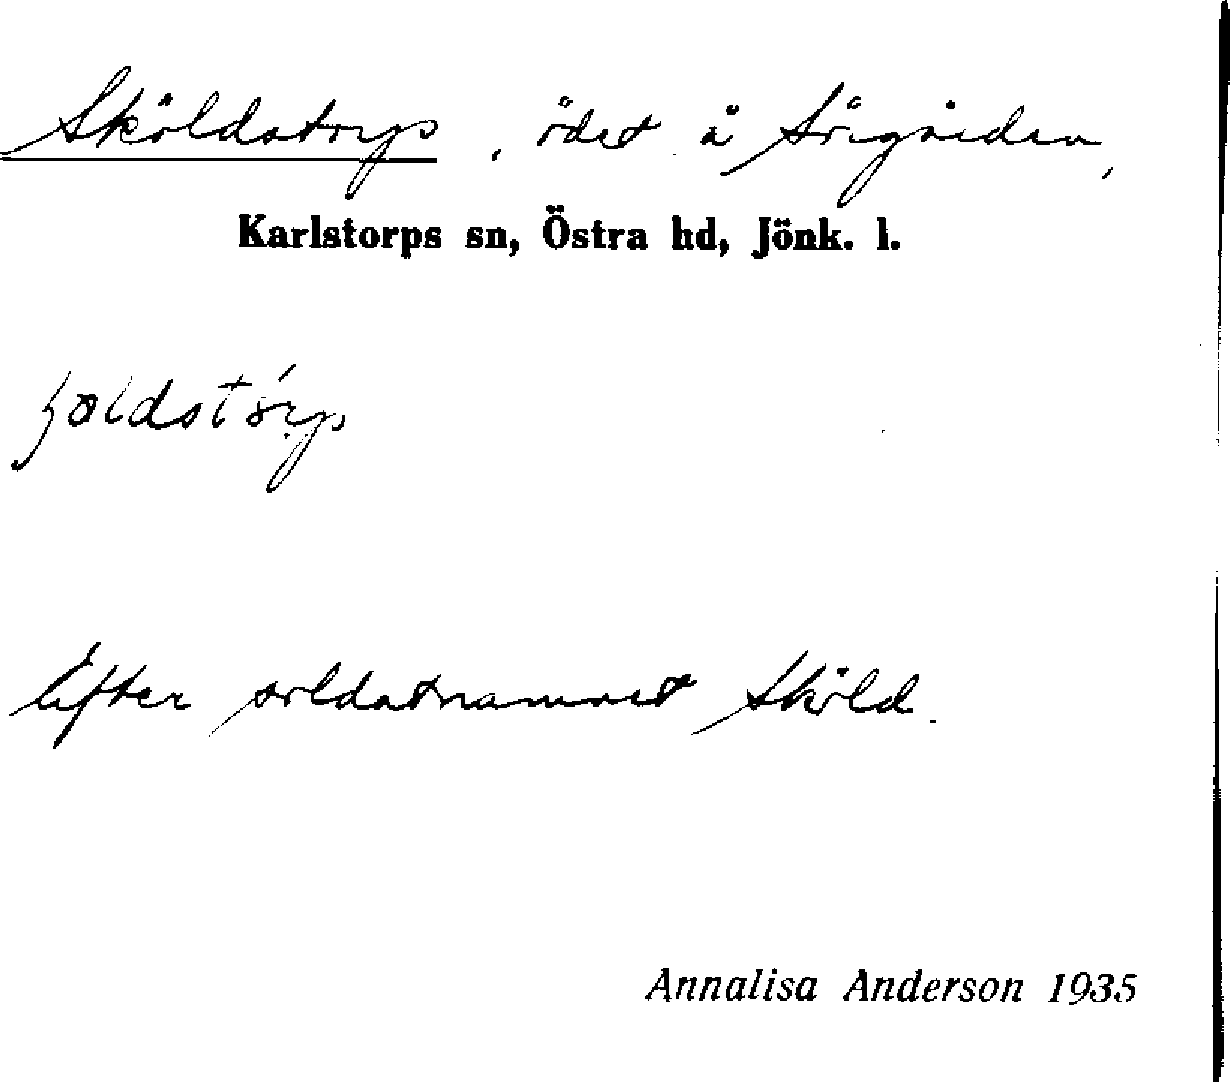 Sköldstorp, ödet å Sörgården,
Karlstorps sn, Östra hd, Jönk. l.
Efter soldatnamnet Sköld.
Annalisa Anderson 1935